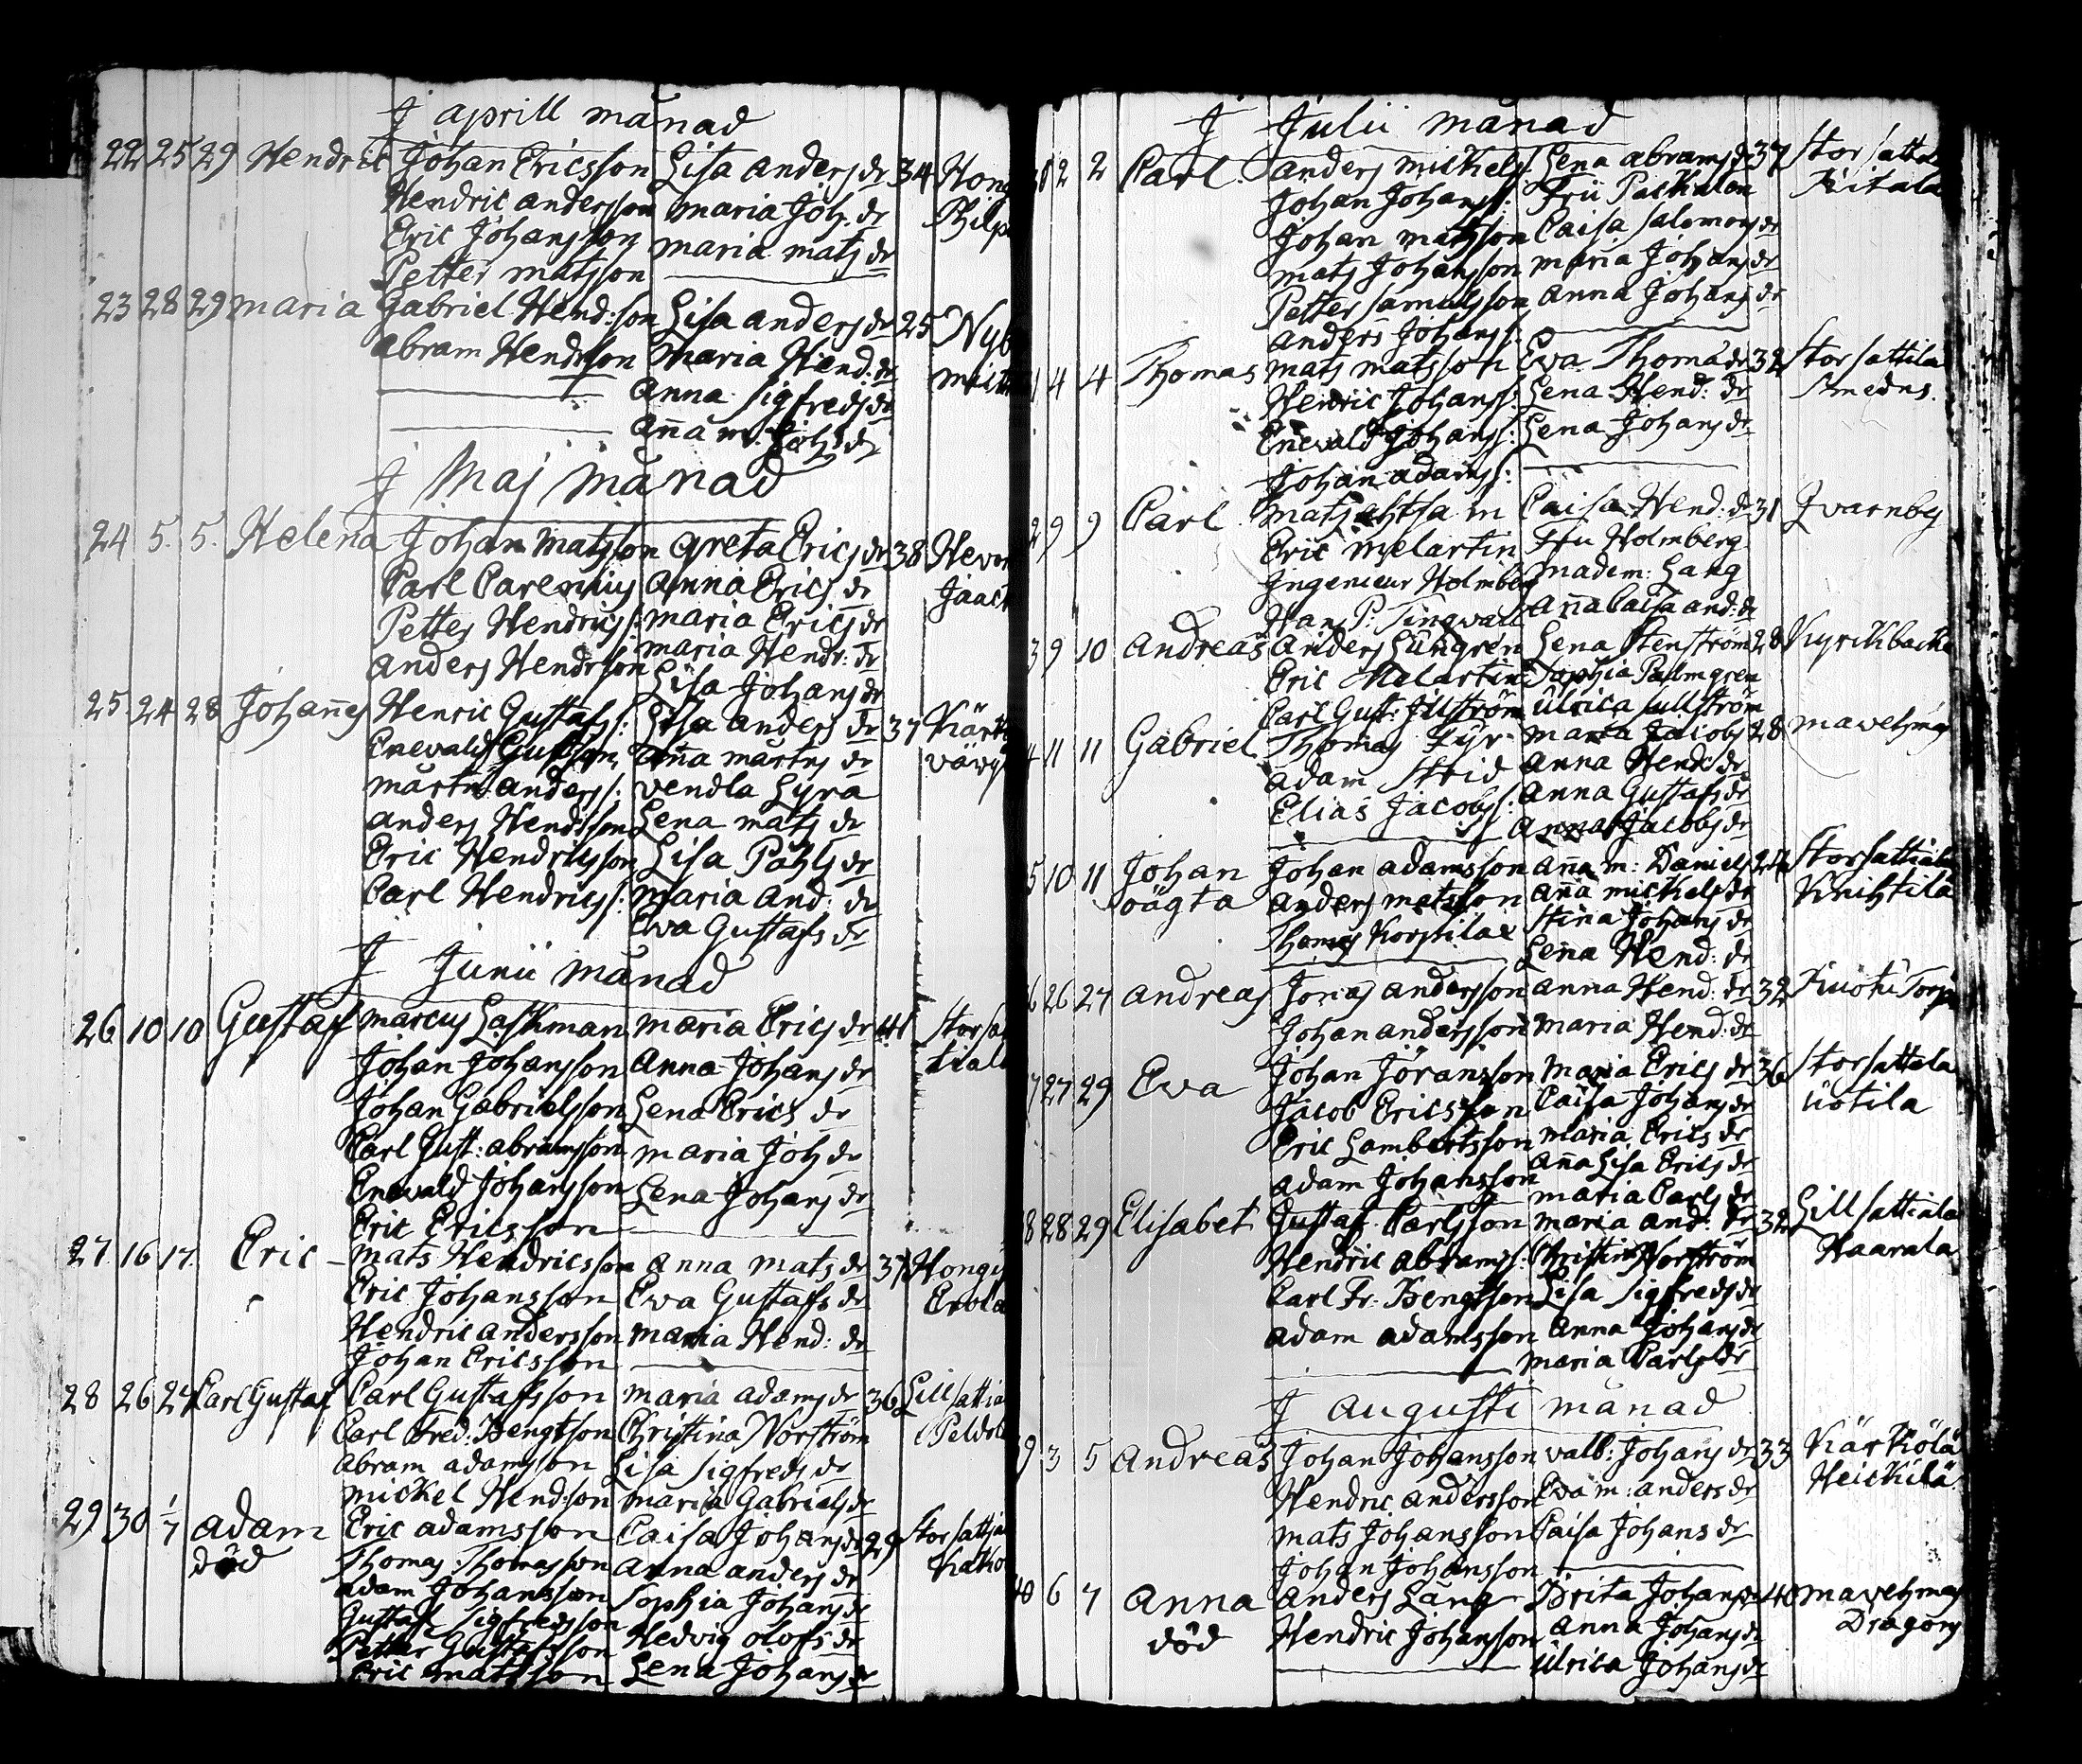 J aprill månad
22 25 29 Hendric Johan Ericsson Lisa anders dr 34 Hong
Hendric andersson maria Joh. dr Philp
Eric Johansson maria mats dr
Petter matsson
23 28 29 maria Gabriel Hend:son Lisa anders dr 25 Nyb
abram Hendrsson maria Hend: dr
anna Sigfreds dr
aña m. Joh: dr
J Maj månad
24 5. 5. Helena Johan Matsson greta Erics dr 38
Carl Carenius anna Erics dr Jaack
Petter Hendrics s: maria Erics dr
anders Hendrsson maria Hendr: dr
Lisa Johans dr
25 24 28 Johañes Henric Gustafs s: Lisa anders dr 37
Enevald Gustsson aña mårtns dr
mårtn anders s: vendla Lyra
anders Hendsson Lena mats dr
Eric Hendricsson Lisa Påhls dr
Carl Hendrics s: maria And: dr
Ewa Gustafs dr
J Junii månad
26 10 10 Gustaf marcus Laskman maria Erics dr 41 Stor sa
Johan Johansson Anna Johans dr tiala
Johan Gabrielsson Lena Erics dr
Carl Gust: abramsson maria Joh dr
Enevald Johansson Lena Johans dr
Eric Ericsson
27 16 17. Eric mats Hendricsson anna mats dr 37 Hongi
Eric Johansson Ewa Gustafs dr Erola
Hendric andersson maria Hend: dr
Johan Ericsson
28 26 27 Carl Gustaf Carl Gustafsson maria adams dr 36 Lill sattia
Carl Fred: Bengtson Christina Norström Peldo
abram adamsson Lisa Sigfreds dr
mickel Hend:son maria Gabriels dr
29 30 1/7 adam Eric adamsson Caisa Johans dr 29 Stor sattia
död Thomas Thomasson anna anders dr
adam Johansson Sophia Johans dr
Gustaf Sigfredsson Hedvig olofs dr
Petter Gustafsson Lena Johans dr
Eric mattsson
J Julii månad
2 2 Carl anders mickels s: Lena abrams dr 37 Stor sattia
Johan Johans s: Fru Packalen
Johan matsson Caisa Salomons dr
mats Johansson maria Johans dr
Petter Samulsson anna Johans dr
anders Johans s:
4 4 Thomas mats matsson Ewa Thoma dr 32 Stor sattila
Hendric Johans s: Lena Hend: dr Smedns.
Enevald Johans s: Lena Johans dr
Johan adams s:
9 9 Carl mats Caisa Hend: dr 31 Qvarnby
Eric Melartin Fru Holmberg
Ingenieur Holmberg madem: Lang
Han P. Tingvall aña Caisa and: dr
9 10 andreas Anders Lungren Lena Stenström 28 Kyrckbacke
Eric Melartin Sophia Palmgren
Carl Gust: Jllström Ulrica Jullström
11 11 Gabriel Thomas Fyr maria Jacobs 28
adam Strid anna Hend: dr
Elias Jacobs s: anna Gustafs dr
anna Jacobs dr
5 10 11 Johan Johan adamsson aña m: Daniels 24 Stor sattiala
oägta anders matsson aña mickels dr Knihtilä
Thomas Korpilax Stina Johans dr
Lena Hend: dr
6 26 27 andreas Jonas andersson anna Hend: dr 32 Torp
Johan andersson maria Hend: dr
7 27 29 Ewa Johan Jöransson maria Erics dr 36 Stor sattela
Jacob Ericsson Caisa Johans dr uotila
Eric Lambertsson maria Erics dr
adam Johansson aña Lisa Erics dr
maria Carls dr
8 28 29 Elisabet Gustaf Carlsson maria and: dr 32 Lill sattiala
Hendric Abrams s: Christina Norström Haarala
Carl Fr: Bengtson Lisa Sigfreds dr
adam adamsson anna Johans dr
maria Carls dr
J augusti månad
39 3 5 andreas Johan Johansson valb: Johans dr 33 Kärkölä
Hendric andersson Ewa m: anders dr Heickilä
mats Johansson Caisa Johans dr
Johan Johansson
40 6 7 anna anders Lång Brita Johans dr 40
död Hendric Johansson anna Johans dr Dragon
Ulrica Johans dr